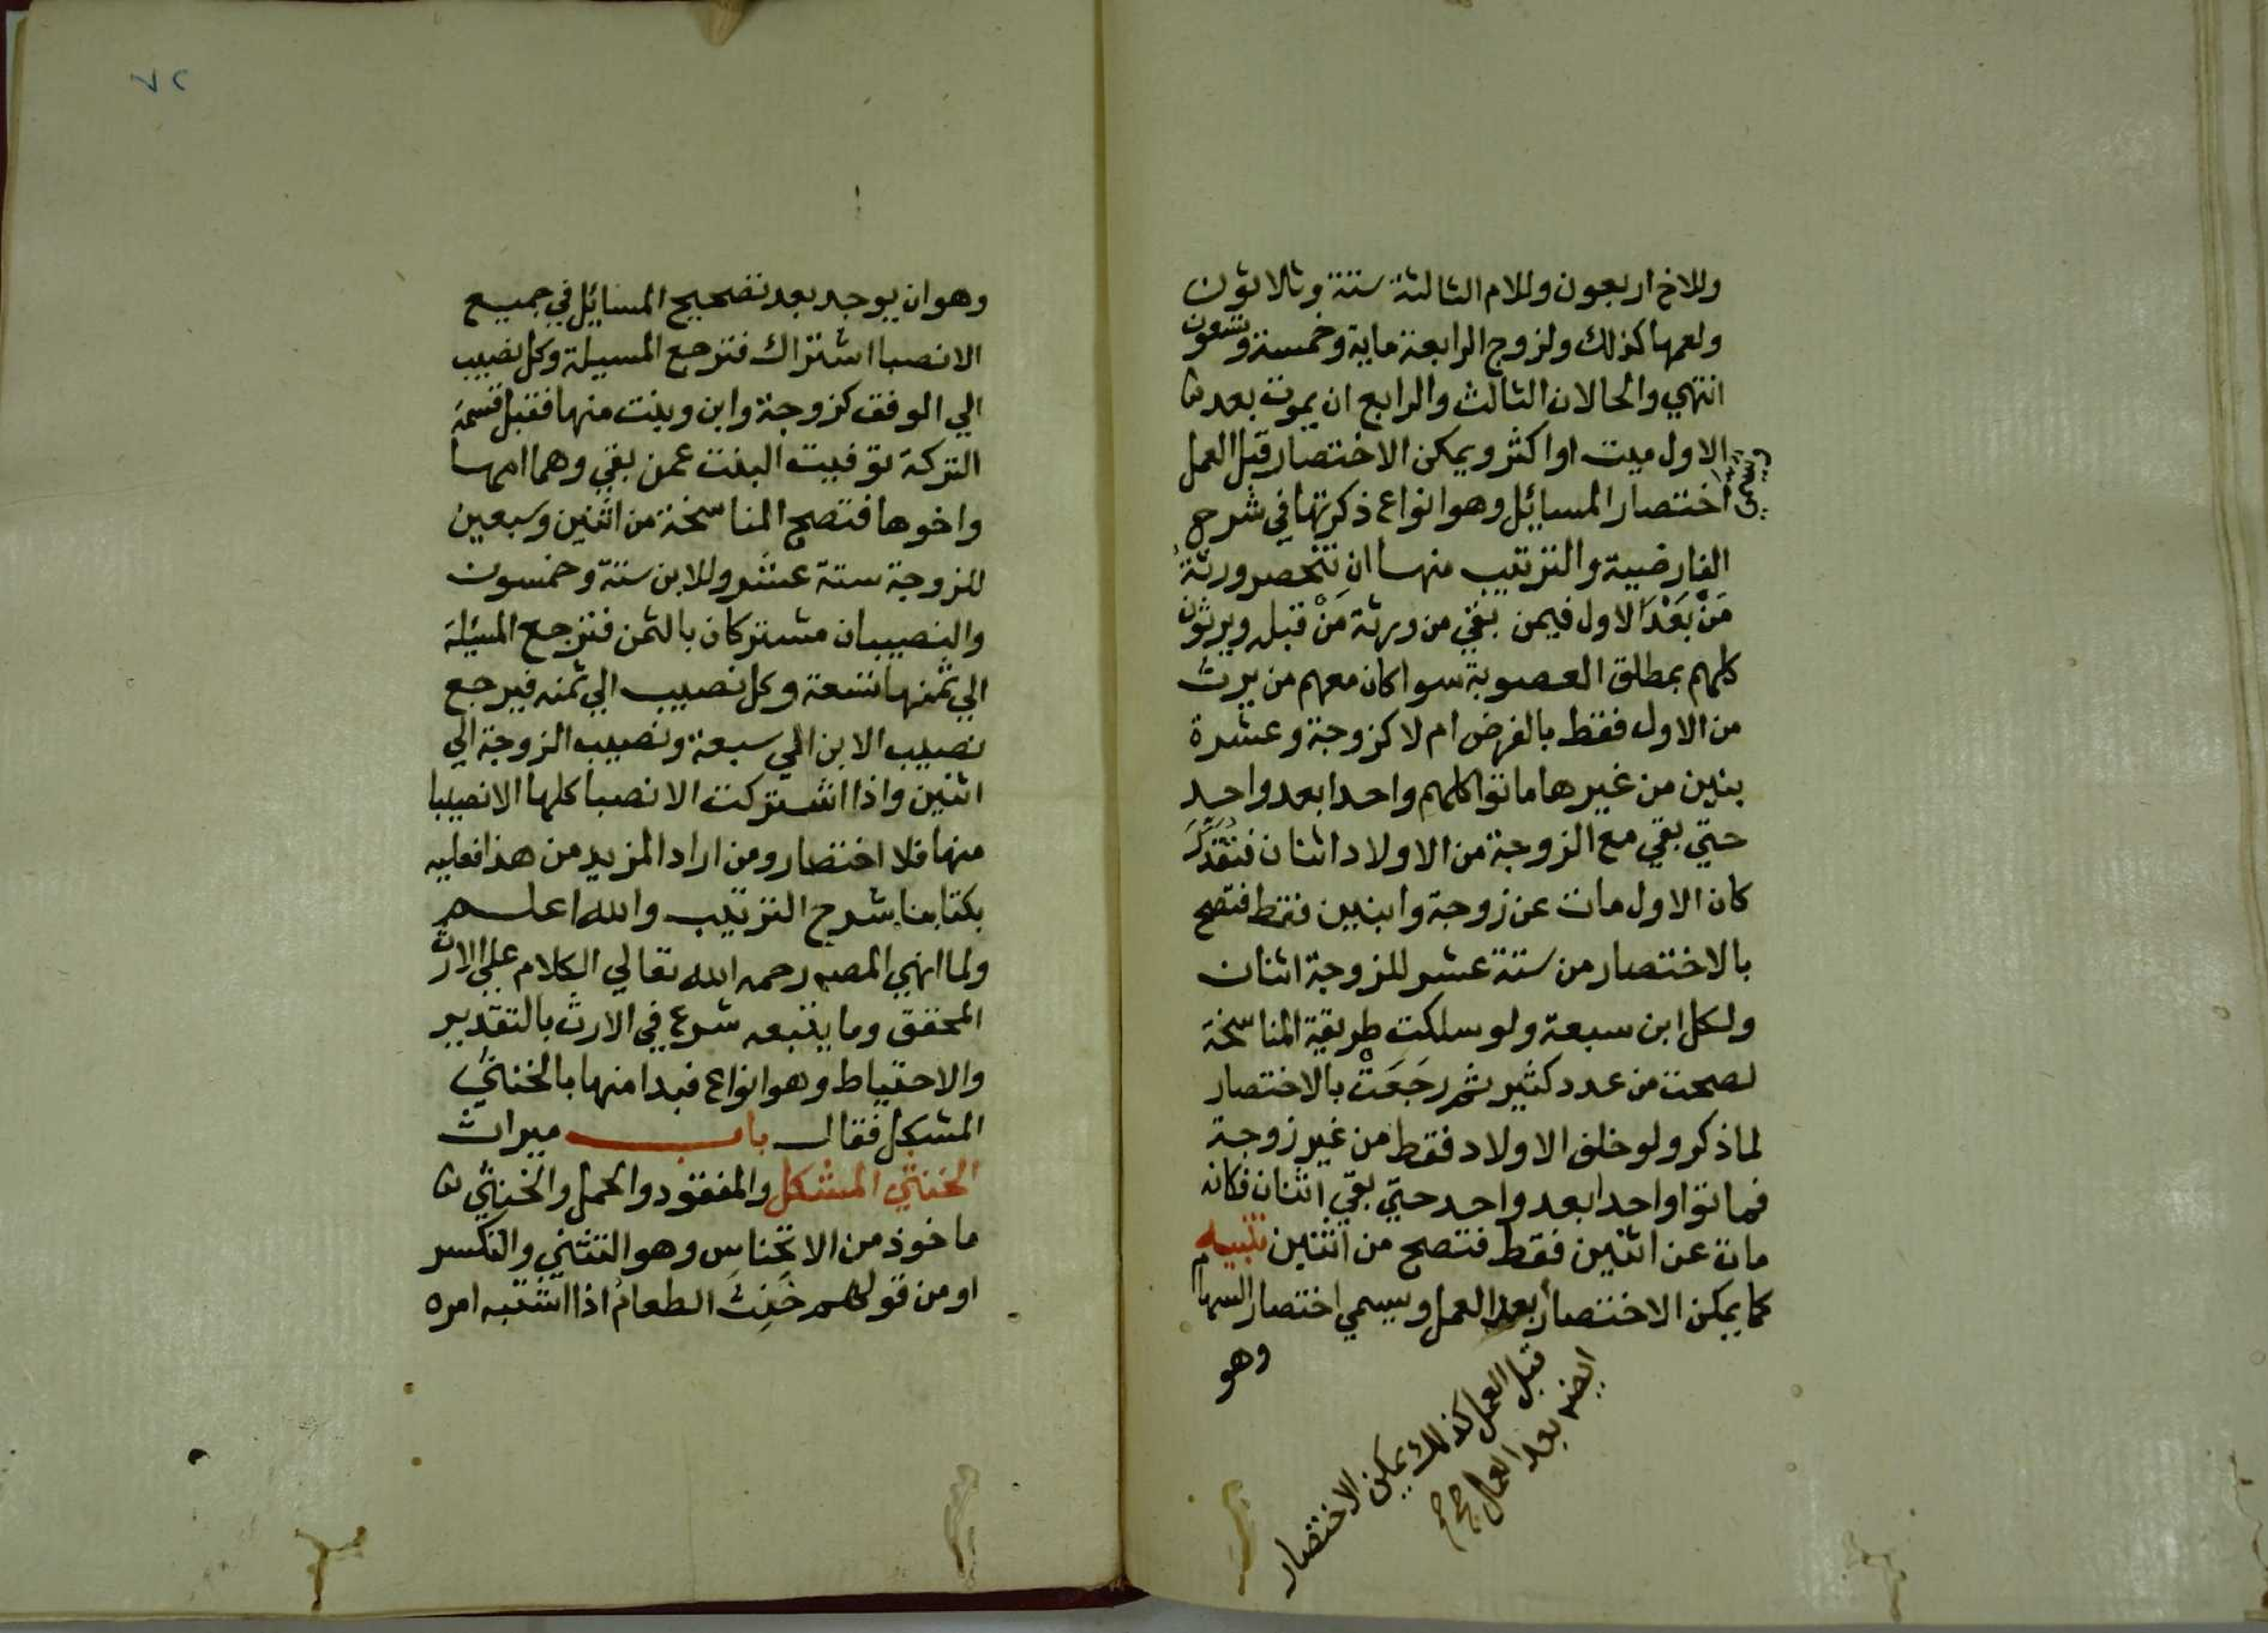 وللاخ اربعون وللام الثالثة ستة وثلاثون
ولعمها كذلك ولزوج الرابعة ماية وخمسة وتسعون
انتهي والحالان الثالث والرابع ان يموت بعد
الاول ميت او اكثر ويمكن الاختصار قبل العمل
اختصار المسايل وهو انواع ذكرتها في شرح
الفارضية والترتيب منها ان تنحصر ورثة
من بعد الاول فيمن بقي من ورثة من قبله ويرثون
كلهم بمطلق العصوبة سوا كان معهم من يرث
من الاول فقط بالفرض ام لا كزوجة وعشرة
بنين من غيرها ماتوا كلهم واحدا بعد واحد
حتي بقي مع الزوجة من الاولاد اثنان فتقدر
كان الاول مات عن زوجة وابنين فقط فتصح
بالاختصار من ستة عشر للزوجة اثنان
ولكل ابن سبعة ولو سلكت طريقة المناسخة
لصحت من عدد كثير ثم رجعت بالاختصار
لما ذكر ولو خلف الاولاد فقط من غير زوجة
فماتوا واحدا بعد واحد حتي بقي اثنان فكانه
مات عن اثنين فقط فتصح من اثنين تنبيه
كما يمكن الاختصار بعد العمل ويسمي اختصار السهام
وهو
قبل العمل كذلك يمكن الاختصار
ايضا بعد العمل
٧٢
وهو ان يوجد بعد تصحيح المسايل في جميع
الانصبا اشتراك فترجع المسيلة وكل نصيب
الي الوفق كزوجة وابن وبنت منها فقبل قسمة
التركة توفيت البنت عمن بقي وهما امها
واخوها فتصح المناسخة من اثنين وسبعين
للزوجة ستة عشر وللابن ستة وخمسون
والنصيبان مشتركان بالثمن فترجع المسئلة
الي ثمنها تسعة وكل نصيب الي ثمنه فيرجع
نصيب الابن الي سبعة ونصيب الزوجة الي
اثنين واذا اشتركت الانصبا كلها الا نصيبا
منها فلا اختصار ومن اراد المزيد من هذا فعليه
بكتابنا شرح الترتيب والله اعلم
ولما انهي المصه رحمه الله تعالي الكلام علي الارث
المحقق وما يتبعه شرع في الارث بالتقدير
والاحتياط وهو انواع فبدا منها بالخنثي
المشكل فقال باب ميراث
الخنثي المشكل والمفقود والحمل والخنثي
ماخوذ من الانخناس وهو التثني والتكسر
او من قولهم خَنِثَ الطعامُ اذا اشتبه امره